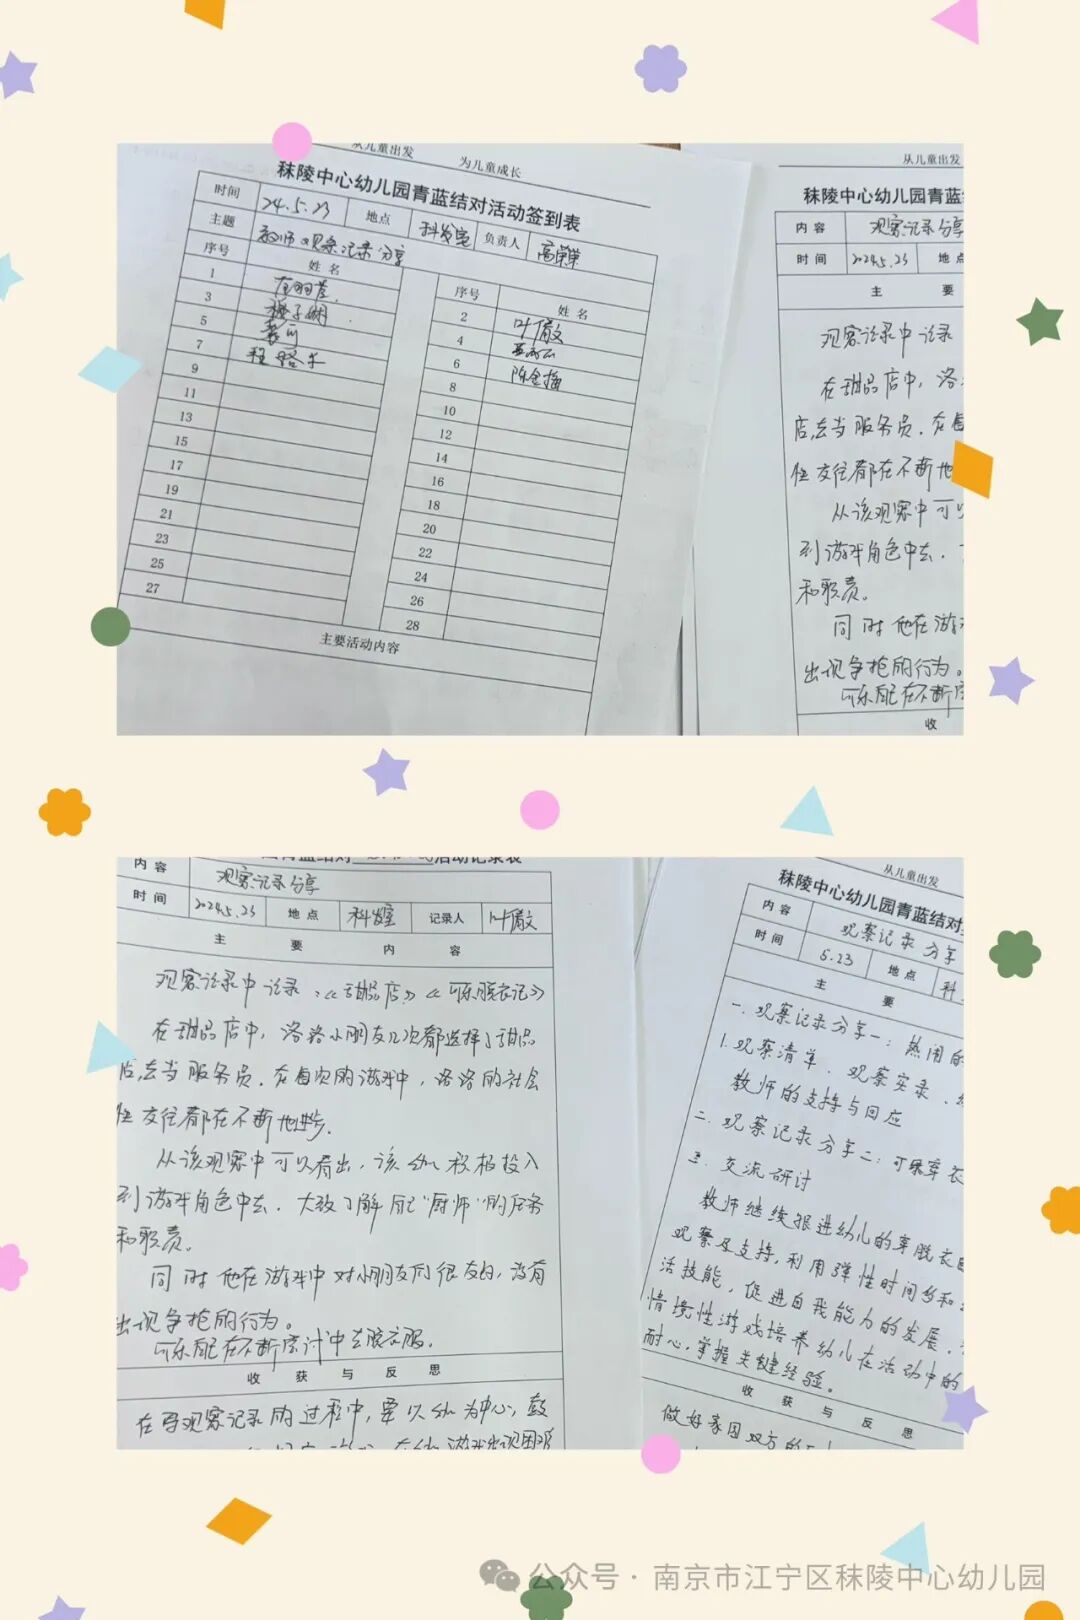 从儿童出发 为儿童成长
秣陵中心幼儿园青蓝结对活动签到表
时间 24.5.23 地点 科发室 负责人
主题 教师观察记录分享
序号 姓名 序号 姓名
1 2 叶微
3 4
5 6 陈金梅
7 8
9 10
11 12
13 14
15 16
17 18
19 20
21 22
23 24
25 26
27 28
主要活动内容
从儿童出发
秣陵中心幼儿园青蓝结
内容 观察记录分享
时间 2024.5.23 地点
主 要
观察记录中记录
在甜品店中，洛
店去当服务员.在每
性交往都在不断地
从该观察中可以
到游戏角色中去.
和职责。
同时他在游戏
出现争抢的行为。
可乐能在不断
收
内容 观察记录分享
时间 2024.5.23 地点 科发室 记录人 叶微
主 要 内 容
观察记录中记录:《甜品店》《可乐脱衣记》
在甜品店中，洛洛小朋友几次都选择了甜品
店去当服务员.在每次的游戏中，洛洛的社会
性交往都在不断地进步.
从该观察中可以看出，该幼儿积极投入
到游戏角色中去.大致了解自己“厨师”的任务
和职责。
同时他在游戏中对小朋友们很友好，没有
出现争抢的行为。
可乐能在不断 中去脱衣服.
收 获 与 反 思
在写观察记录的过程中，要以幼儿为中心，鼓
从儿童出发
秣陵中心幼儿园青蓝结对
内容 观察记录分享
时间 5.23 地点 科
主 要
一.观察记录分享一：热闹的
1.观察清单、观察实录、
教师的支持与回应
二.观察记录分享二：可乐穿衣
三.交流研讨
教师继续推进幼儿的穿脱衣
观察及支持，利用弹性时间多和
活技能，促进自我能力的发展.
情境性游戏培养幼儿在活动中的
耐心，掌握关键经验。
收 获 与 反 思
做好家园双方的
公众号·南京市江宁区秣陵中心幼儿园